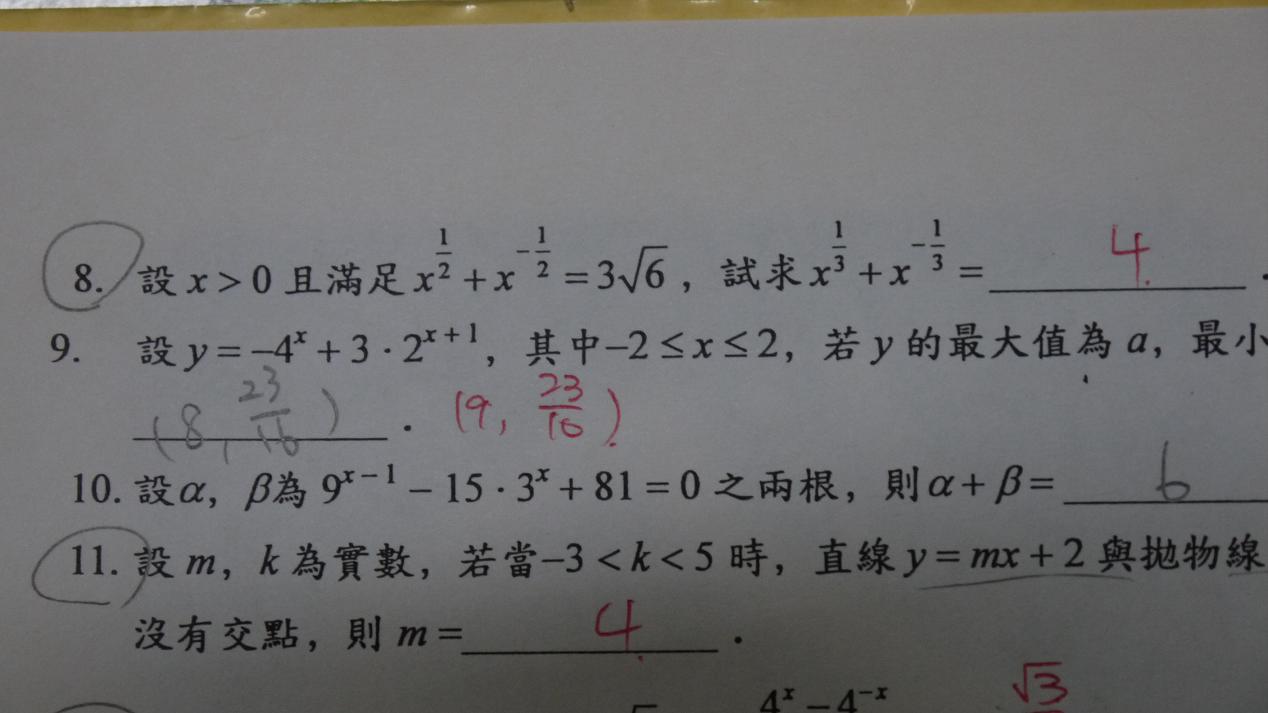 8. 設 x > 0 且滿足 x^{1/2} + x^{-1/2} = 3√6 ，試求 x^{1/3} + x^{-1/3} = 4 .
9. 設 y = –4^x + 3 · 2^{x+1}，其中 –2 ≤ x ≤ 2，若 y 的最大值為 a，最小
(8, 23/16) . (9, 23/16)
10. 設 α，β 為 9^{x–1} – 15 · 3^x + 81 = 0 之兩根，則 α + β = 6
11. 設 m，k 為實數，若當 –3 < k < 5 時，直線 y = mx + 2 與拋物線
沒有交點，則 m = 4 .
4^x – 4^{-x} √3